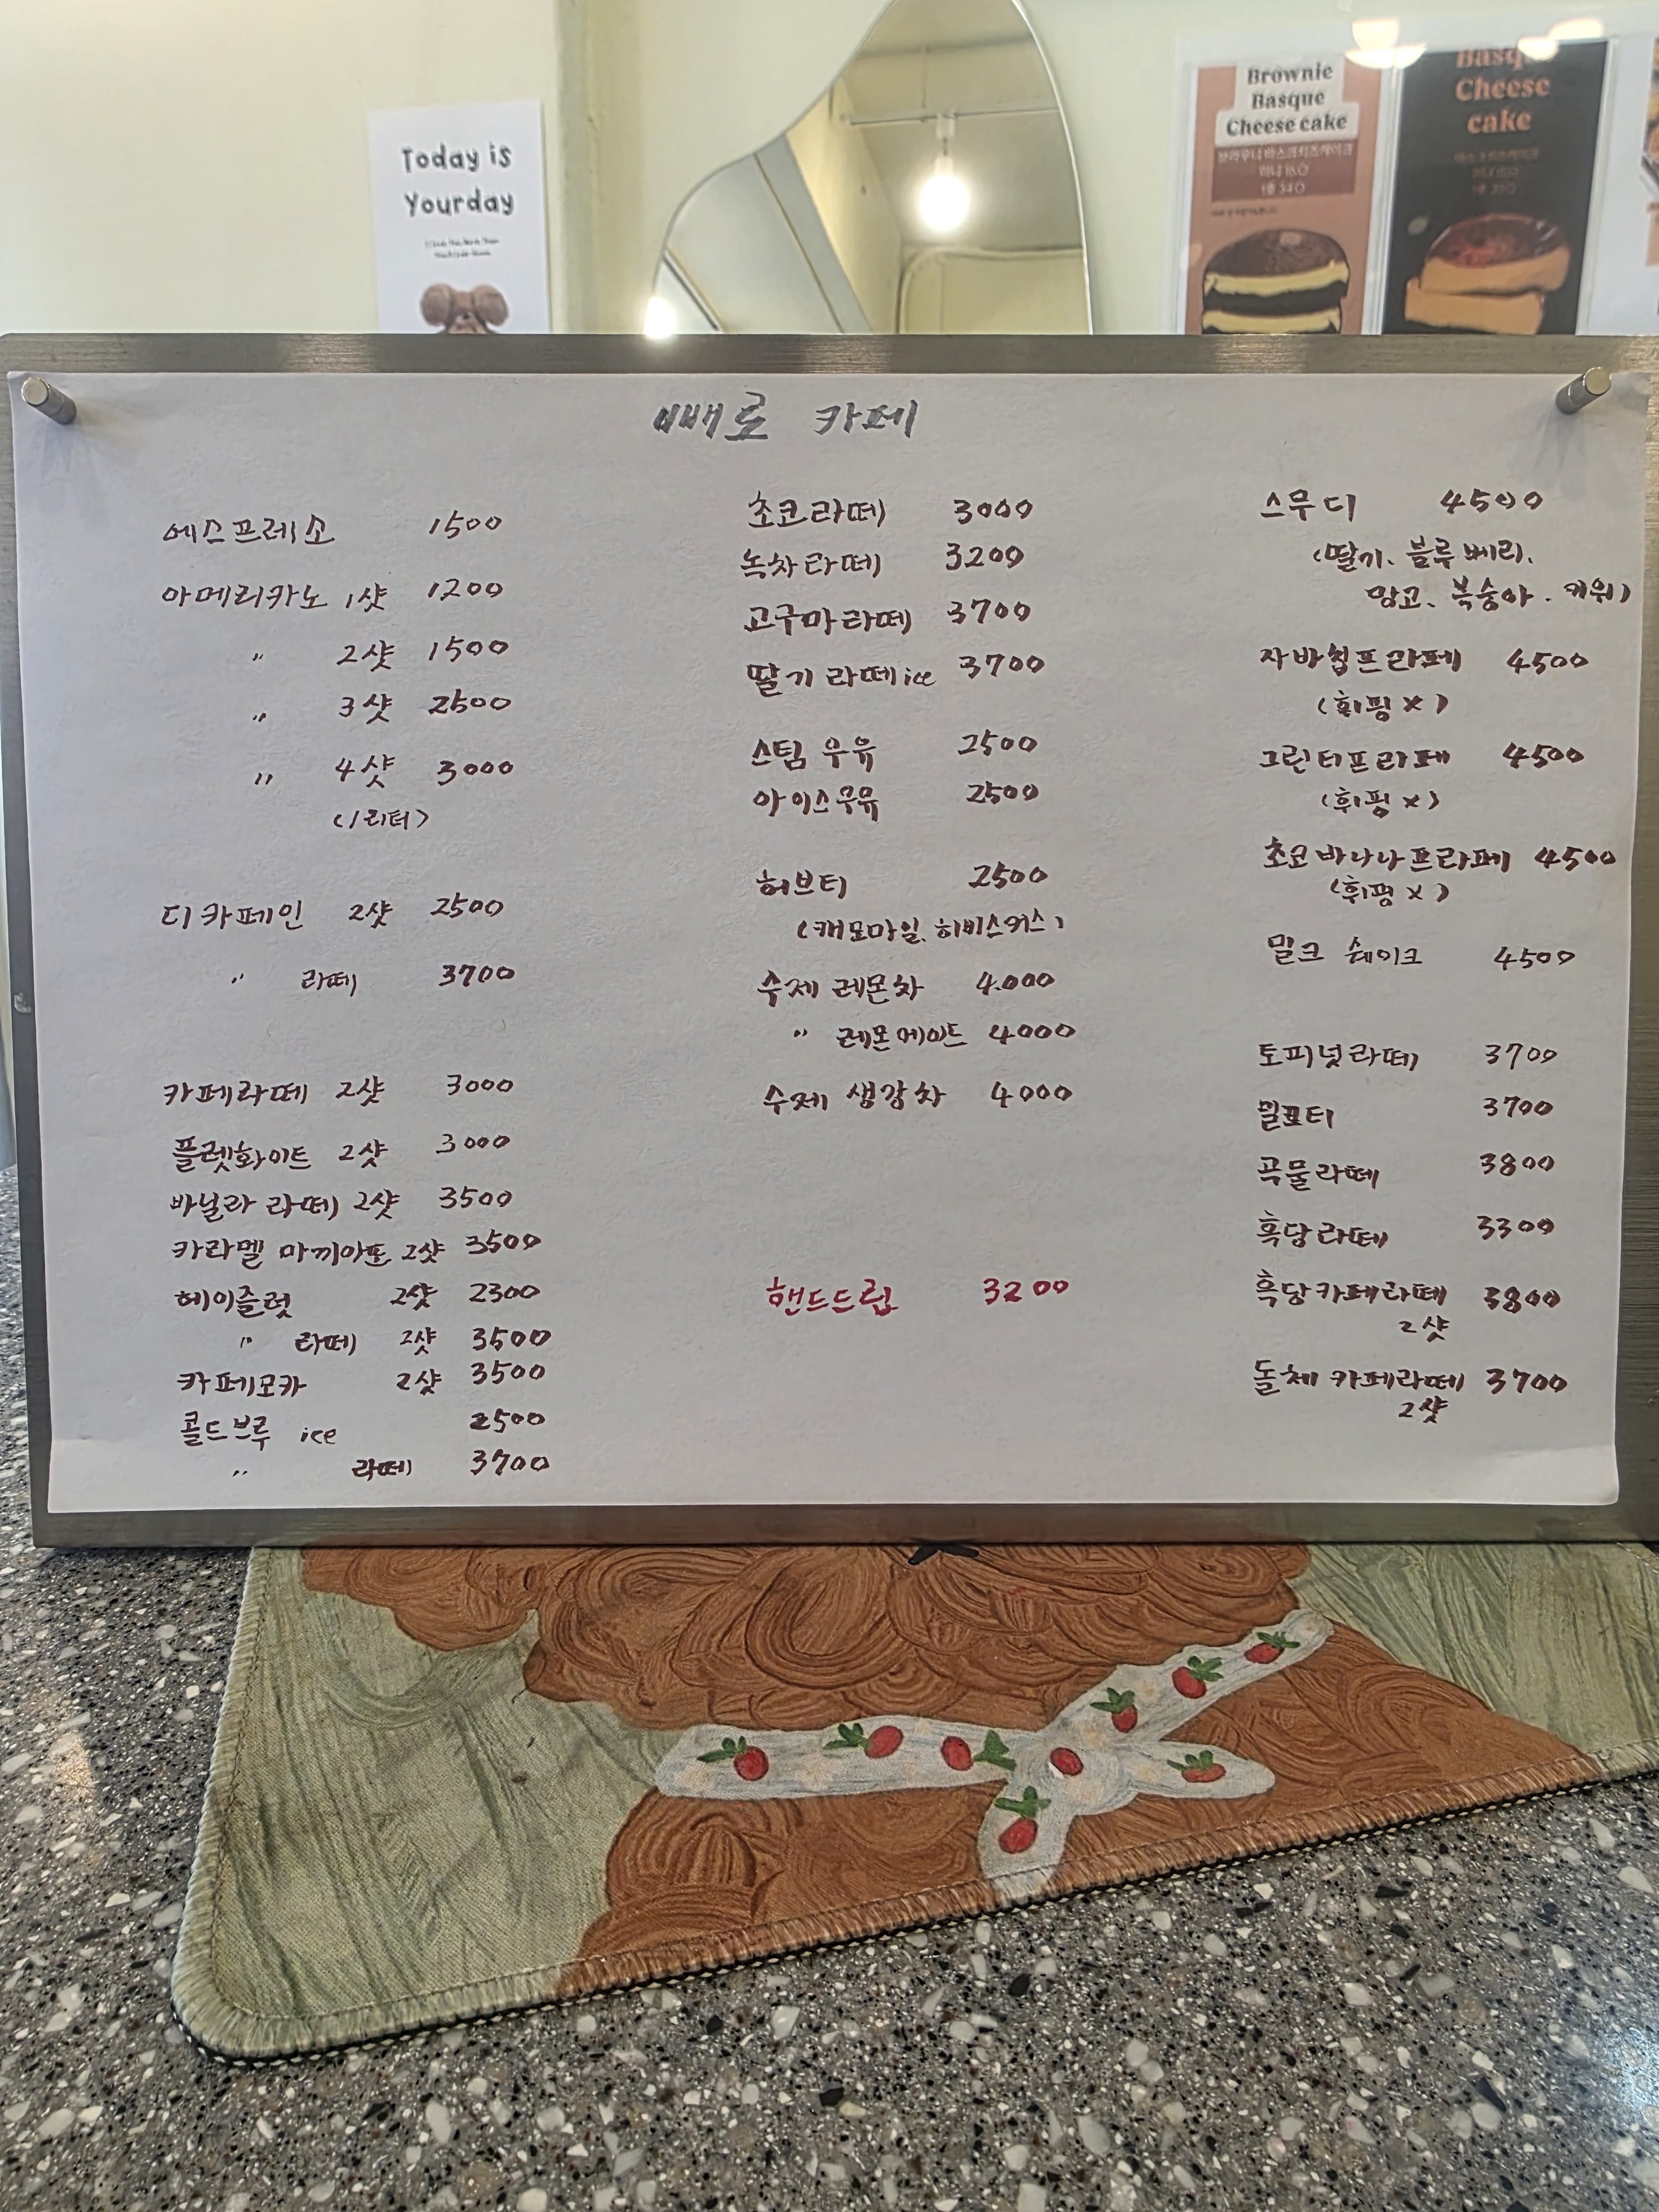 Today is
Yourday
Brownie
Basque
Cheese cake
브라우니 바스크치즈케이크
Basque
Cheese
cake
바스크치즈케이크
빼로 카페
에스프레소 1500
아메리카노 1샷 1200
〃 2샷 1500
〃 3샷 2500
〃 4샷 3000
(1리터)
디카페인 2샷 2500
〃 라떼 3700
카페라떼 2샷 3000
플렛화이트 2샷 3000
바닐라 라떼 2샷 3500
카라멜 마끼아또 2샷 3500
헤이즐럿 2샷 2300
〃 라떼 2샷 3500
카페모카 2샷 3500
콜드브루 ice 2500
〃 라떼 3700
초코라떼 3000
녹차라떼 3200
고구마라떼 3700
딸기 라떼 ice 3700
스팀 우유 2500
아이스우유 2500
허브티 2500
(캐모마일, 히비스커스)
수제 레몬차 4.000
〃 레몬에이드 4000
수제 생강차 4000
핸드드립 3200
스무디 4500
(딸기, 블루베리,
망고, 복숭아, 키위)
자바칩프라페 4500
(휘핑 x)
그린티프라페 4500
(휘핑 x)
초코바나나프라페 4500
(휘핑 x)
밀크 쉐이크 4500
토피넛라떼 3700
밀크티 3700
곡물라떼 3800
흑당라떼 3300
흑당카페라떼 3800
2샷
돌체 카페라떼 3700
2샷